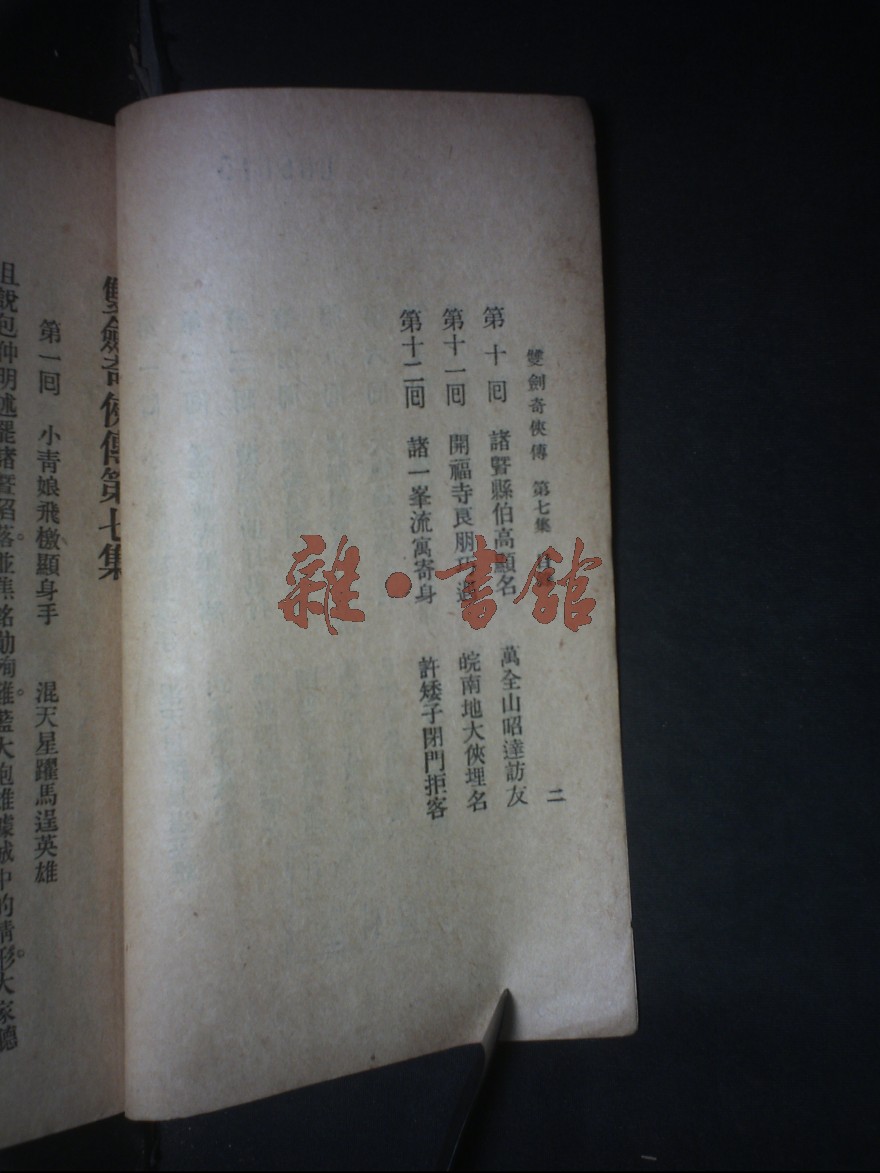 雙劍奇俠傳 第七集 目錄 二
第十回 諸暨縣伯高顯名 萬全山昭達訪友
第十一回 開福寺良朋巧遇 皖南地大俠埋名
第十二回 諸一峯流寓寄身 許矮子閉門拒客
雙劍奇俠傳第七集
第一回 小青娘飛檄顯身手 混天星躍馬逞英雄
且說包仲明述罷諸暨陷落。並焦銘勛殉難。藍大炮雄據城中的情形。大家聽
雜·書館